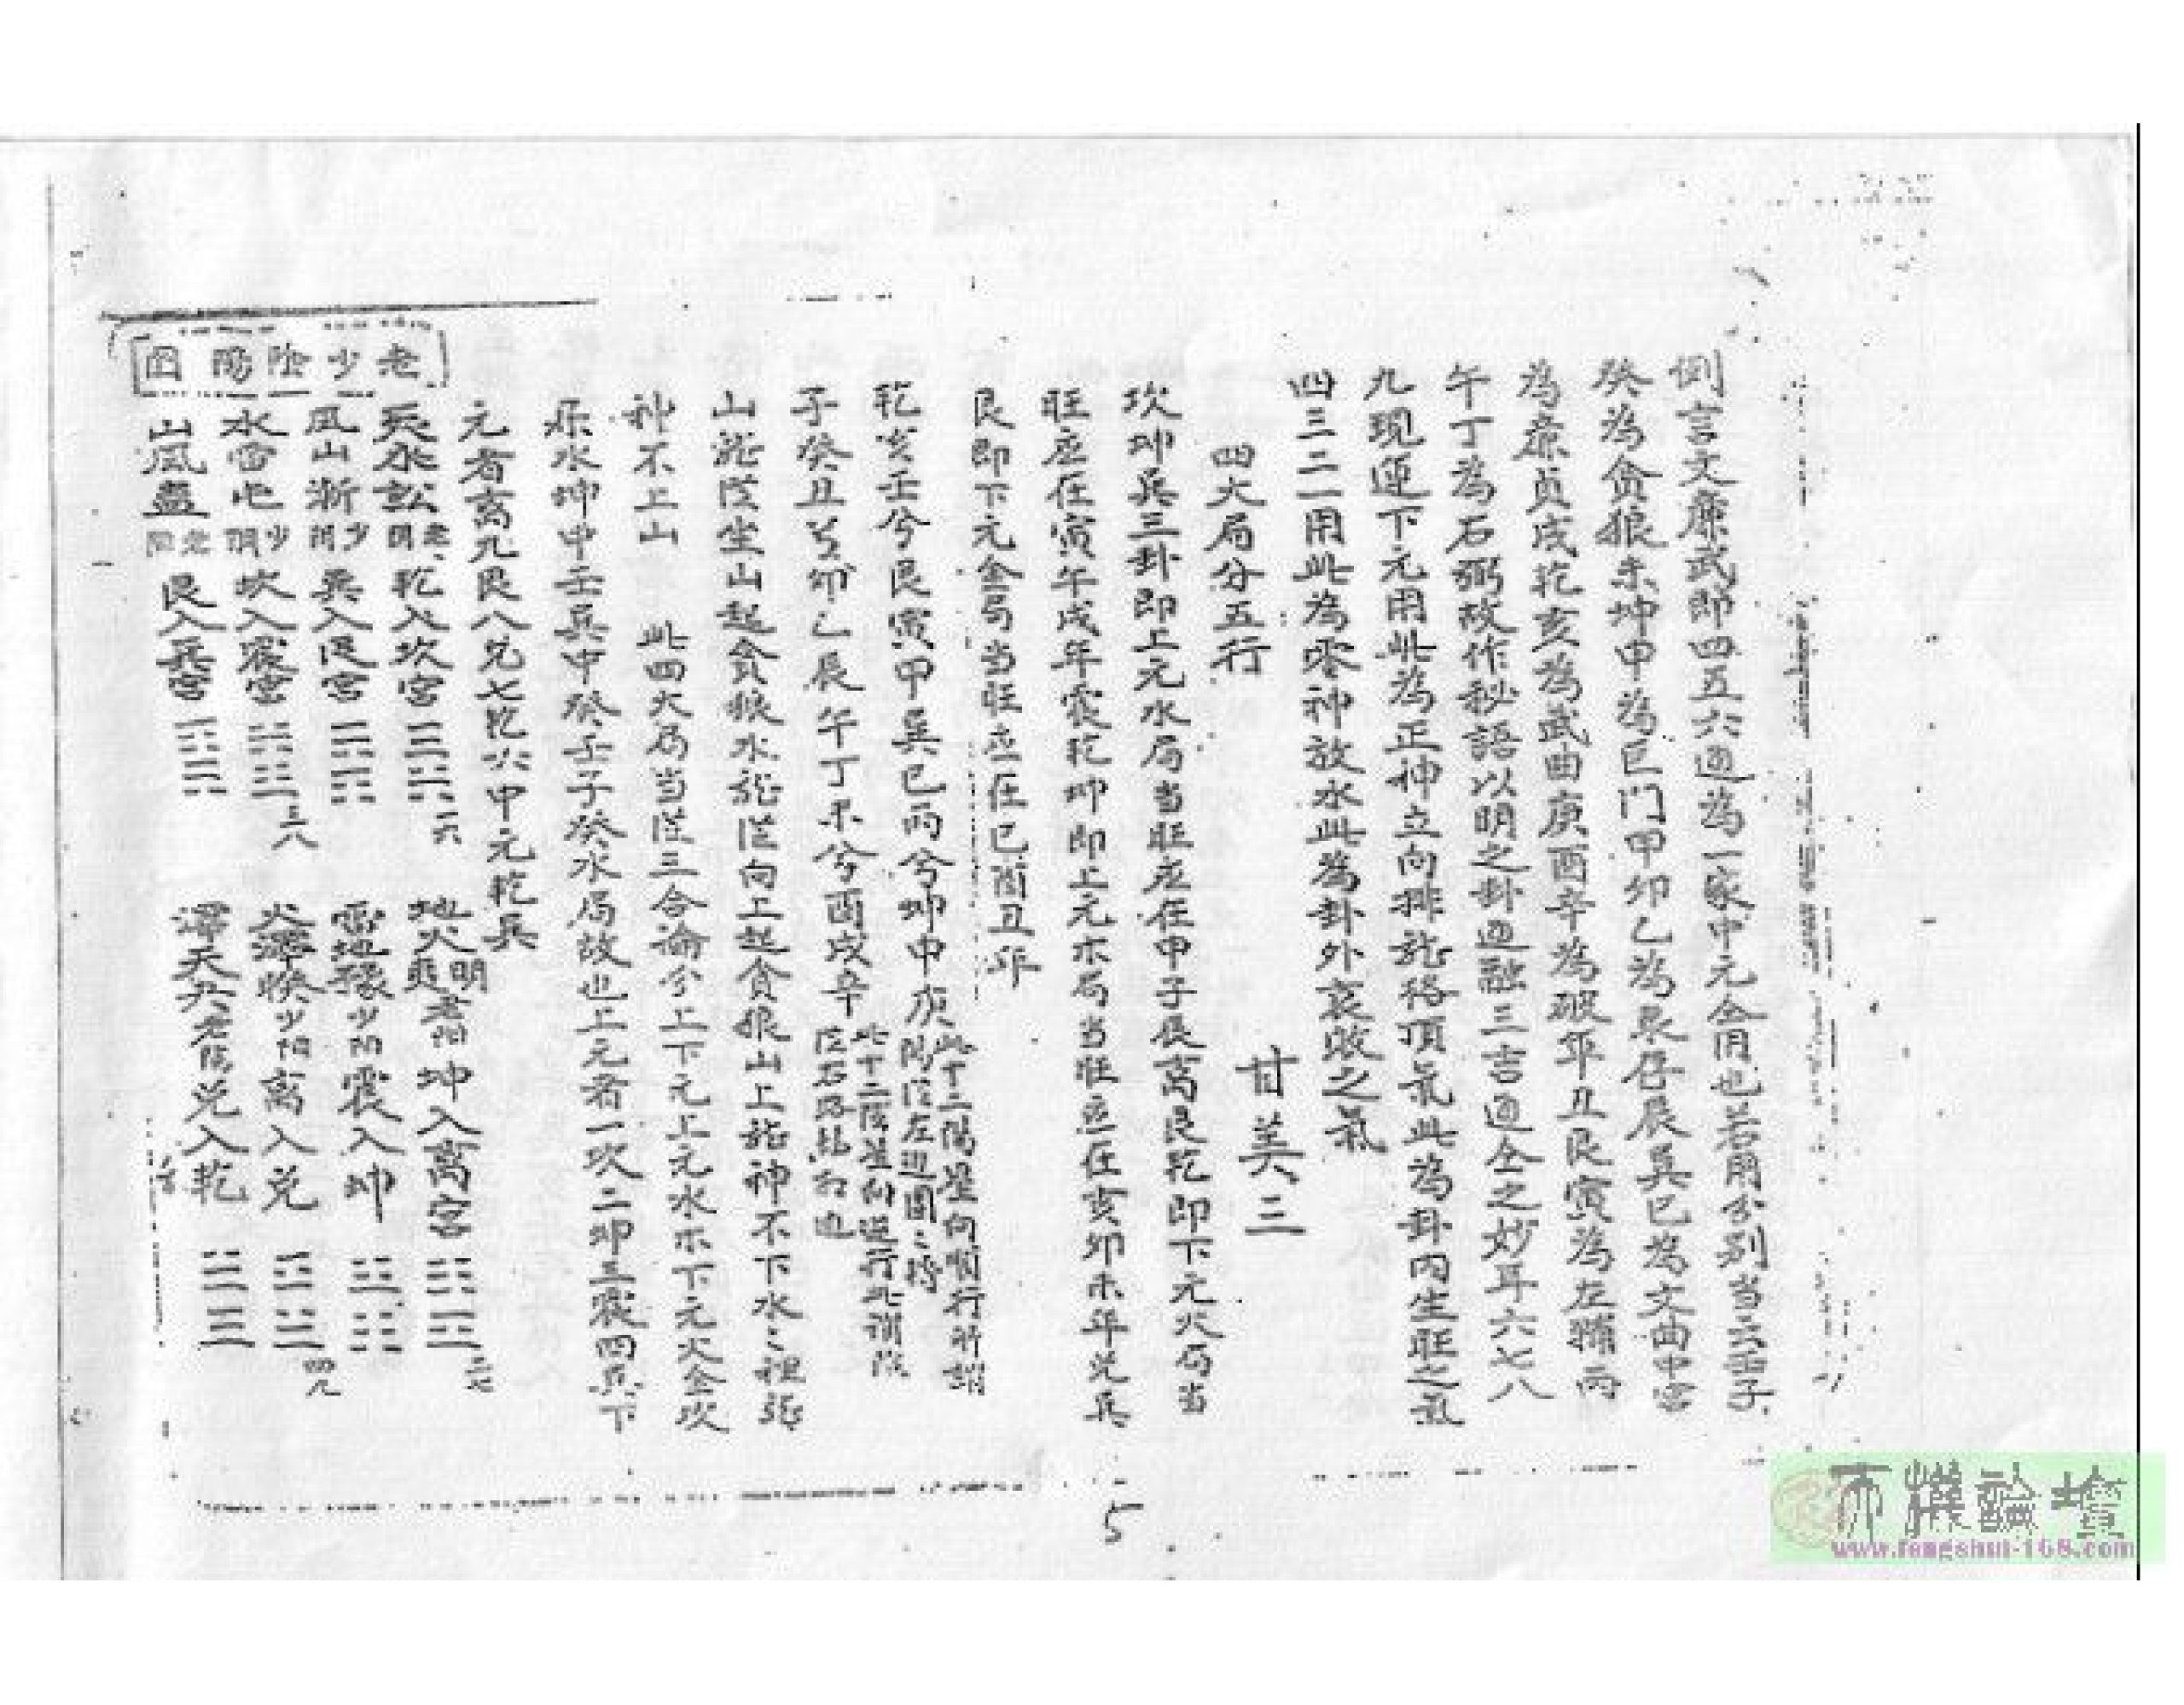 倒言文廉武即四五六通為一家中元合用也若用分列当云壬子
癸為貪狼未坤申為巨門甲卯乙為彔存辰巽巳為文曲中宮
為廉貞戌乾亥為武曲庚酉辛為破軍丑艮寅為左輔丙
午丁為右弼故作秘語以明之卦通融三吉通全之妙耳六七八
九現運下元用此為正神立向排龍格頂氣此為卦内生旺之氣
四三二一用此為零神放水此為卦外衰敗之氣
四大局分五行 廿美三
坎坤巽三卦即上元水局当旺应在申子辰离艮乾即下元火局当
旺应在寅午戌年震乾坤即上元木局当旺应在亥卯未年兑巽
艮即下元金局当旺应在巳酉丑年
乾亥壬兮艮寅甲巽巳丙兮坤申庚 此十二陽星向順行所謂陽從左边團﹦轉
子癸丑兮卯乙辰午丁未兮酉戌辛 此十二陰並向逆行此謂陰從右路轉相迎
山龙從坐山起貪狼水龙從向上起貪狼山上龙神不下水﹦裡龙
神不上山 此四大局当從三合論分上下元上元水木下元火金坎
屬水坤申壬巽中癸壬子癸水局故也上元者一坎二坤三震四巽下
元者离九艮八兑七乾六中元乾巽
老少陰陽图
天水訟 老阴 乾入坎宮 一六 地火明夷 老阳 坤入离宮 二七
風山漸 少阴 巽入艮宮 雷地豫 少阳 震入坤
水雷屯 少阴 坎入震宮 三八 火澤睽 少阳 离入兑 四九
山風蠱 老阳 艮入巽宮 澤天夬 老陰 兑入乾
5
玄機論壇
www.fengshui-168.com